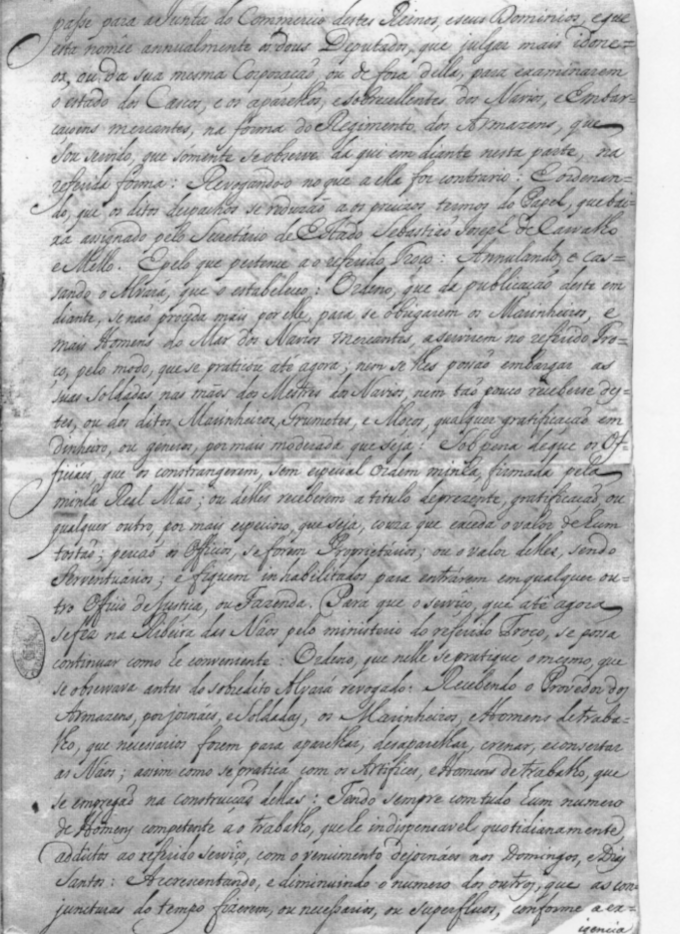 passe para a Junta do Commercio destes Reinos, e seus Dominios, e que
esta nomêe annualmente os dous Deputados, que julgar mais idone=
os, ou da sua mesma Corporação, ou de fora della, para examinarem
o estado dos Cascos, e os aparelhos, e sobrecellentes dos Navios, e Embar=
caçoens mercantes, na forma do Regimento dos Armazens, que
sou servido, que sómente se observe da qui em diante nesta parte, na
referida forma: Revogando-o no que a ella for contrario: E ordenan=
do, que os ditos despachos se reduzão a os precizos termos do Papel, que bai=
xa assignado pelo Secretário de Estado Sebastião Joseph de Carvalho
e Mello. E pelo que pertence a o referido Troço: Annulando, e cas=
sando o Alvará, que o estabeleceo: Ordeno, que da publicação deste em
diante, se não proceda mais por elle, para se obrigarem os Marinheiros, e
mais Homens do Mar dos Navios mercantes, a servirem no referido Tro=
ço, pelo modo, que se praticou até agora; nem se lhes possão embargar as
suas Soldadas nas mãos dos Mestres dos Navios, nem tão pouco receberse des=
tes, ou dos ditos Marinheiros, Grumetes, e Moços, qualquer gratificação em
dinheiro, ou generos, por mais moderada que seja: Sob pena de que os Of=
ficiaes, que os constrangerem, sem especial Ordem minha firmada pela
minha Real Mão; ou delles receberem a titulo de prezente, gratificação, ou
qualquer outro, por mais especioso, que seja, couza que exceda o valor de hum
tostão; percão os Officios, se forem Proprietários; ou o valor delles, sendo
Serventuários; e fiquem inhabilitados para entrarem em qualquer ou=
tro Officio de Justiça, ou Fazenda. Para que o serviço, que até agora
se fez na Ribeira das Náos pelo ministerio do referido Troço, se possa
continuar como he conveniente: Ordeno, que nelle se pratique o mesmo, que
se observava antes do sobredito Alvará revogado: Recebendo o Provedor dos
Armazens, por jornáes, e Soldadas, os Marinheiros, e Homens de traba=
lho, que necessarios forem para aparelhar, desaparelhar, crenar, e consertar
as Náos; assim como se pratica com os Artifices, e Homens de trabalho, que
se empregão na construcção dellas: Tendo sempre com tudo hum numero
de Homens competente a o trabalho, que he indispensavel quotidianamente,
addictos ao referido serviço, com o vencimento de jornáes nos Domingos, e Dias
Santos: Accrescentando, e diminuindo o numero dos outros, que as con=
juncturas do tempo fizerem, ou necessarios, ou superfluos, conforme a ex=
igencia